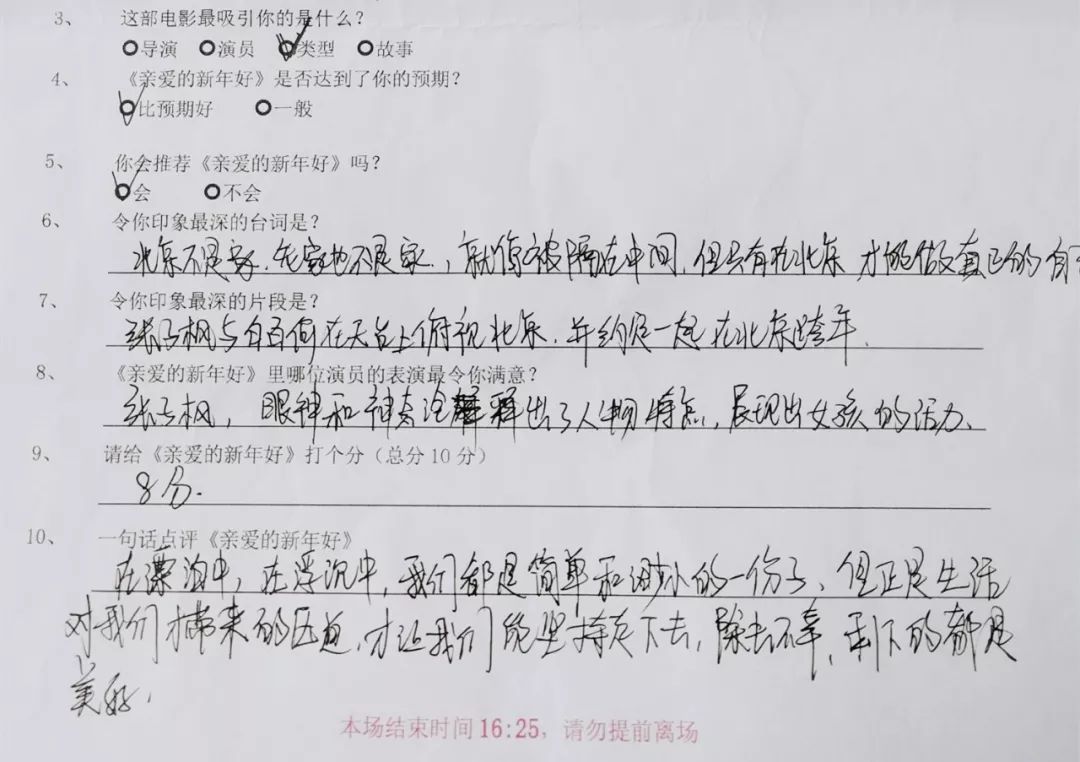 3、 这部电影最吸引你的是什么?
导演 演员 类型 故事
4、 《亲爱的新年好》是否达到了你的预期?
比预期好 一般
5、 你会推荐《亲爱的新年好》吗?
会 不会
6、 令你印象最深的台词是?
北京不是家,老家也不是家,就像被隔在中间,但只有在北京才能做真正的自
7、 令你印象最深的片段是?
张子枫与白百何在天台上俯视北京,并约定一起在北京跨年.
8、 《亲爱的新年好》里哪位演员的表演最令你满意?
张子枫,眼神和神态诠释出了人物特点,展现出女孩的活力、
9、 请给《亲爱的新年好》打个分(总分10分)
8分.
10、 一句话点评《亲爱的新年好》
在漂泊中,在浮沉中,我们都是简单和渺小的一份子、但正是生活
对我们带来的压迫,才让我们能坚持走下去,除去不幸,剩下的都是
美好.
本场结束时间16:25,请勿提前离场